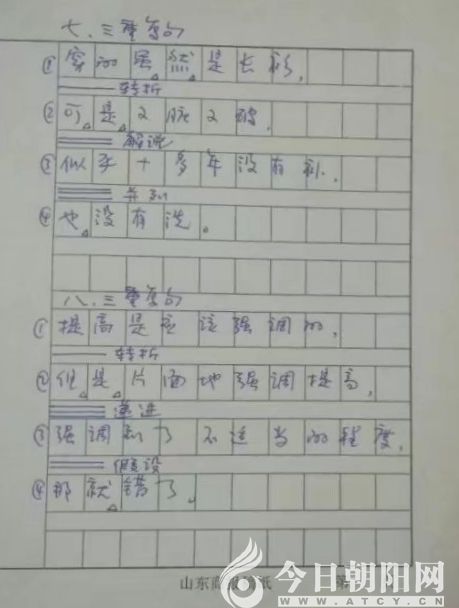 七、三重复句
① 穿的虽然是长衫,
转折
② 可是又脏又破,
解说
③ 似乎十多年没有补,
并列
④ 也没有洗。
八、三重复句
① 提高是应该强调的,
转折
② 但是片面地强调提高,
递进
③ 强调到了不适当的程度,
假设
④ 那就错了。
山东
今日朝阳网
WWW.ATCY.CN